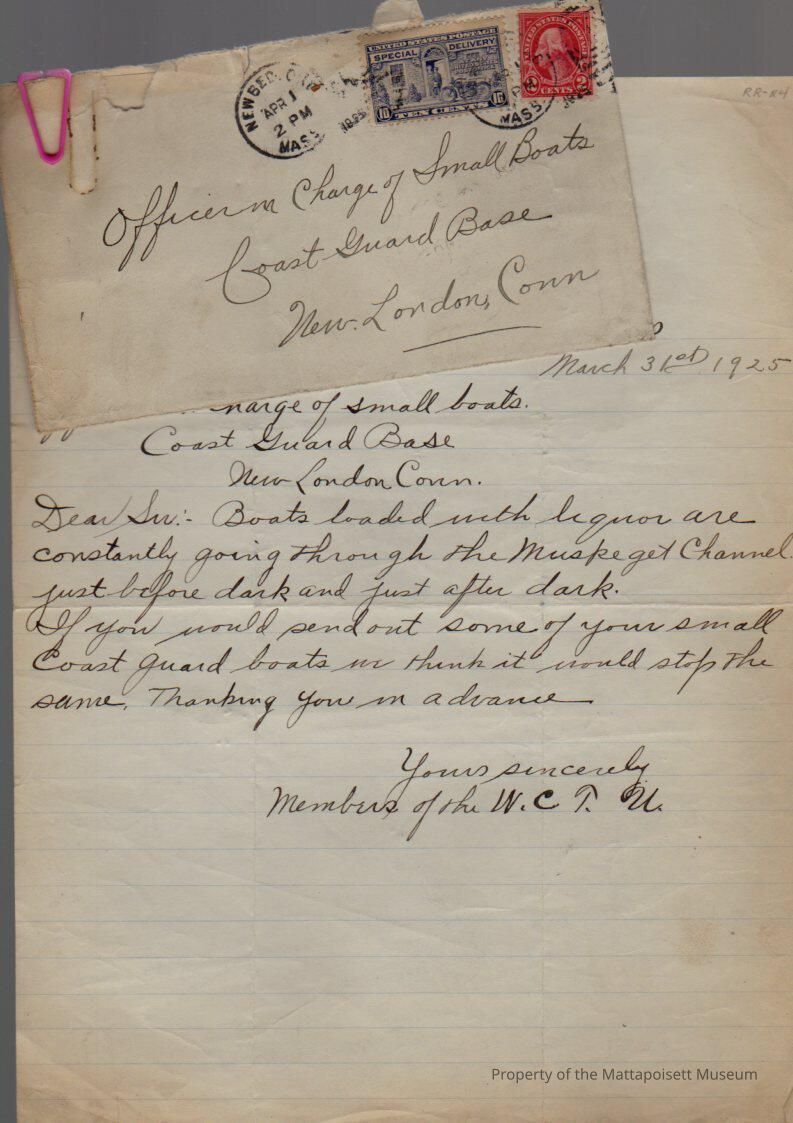 NEW BEDFORD
APR 1
2 PM
MASS.
1925
UNITED STATES POSTAGE
SPECIAL DELIVERY
10 TEN CENTS 10
UNITED STATES POSTAGE
2 CENTS 2
MASS.
RR-24
Officer in Charge of Small Boats
Coast Guard Base
New London, Conn
March 31st, 1925
harge of small boats.
Coast Guard Base
New London Conn.
Dear Sir:- Boats loaded with liquor are
constantly going through the Muskeget Channel.
just before dark and just after dark.
If you would send out some of your small
Coast guard boats we think it would stop the
same. Thanking you in advance
Yours sincerely
Members of the W.C.T.U.
Property of the Mattapoisett Museum